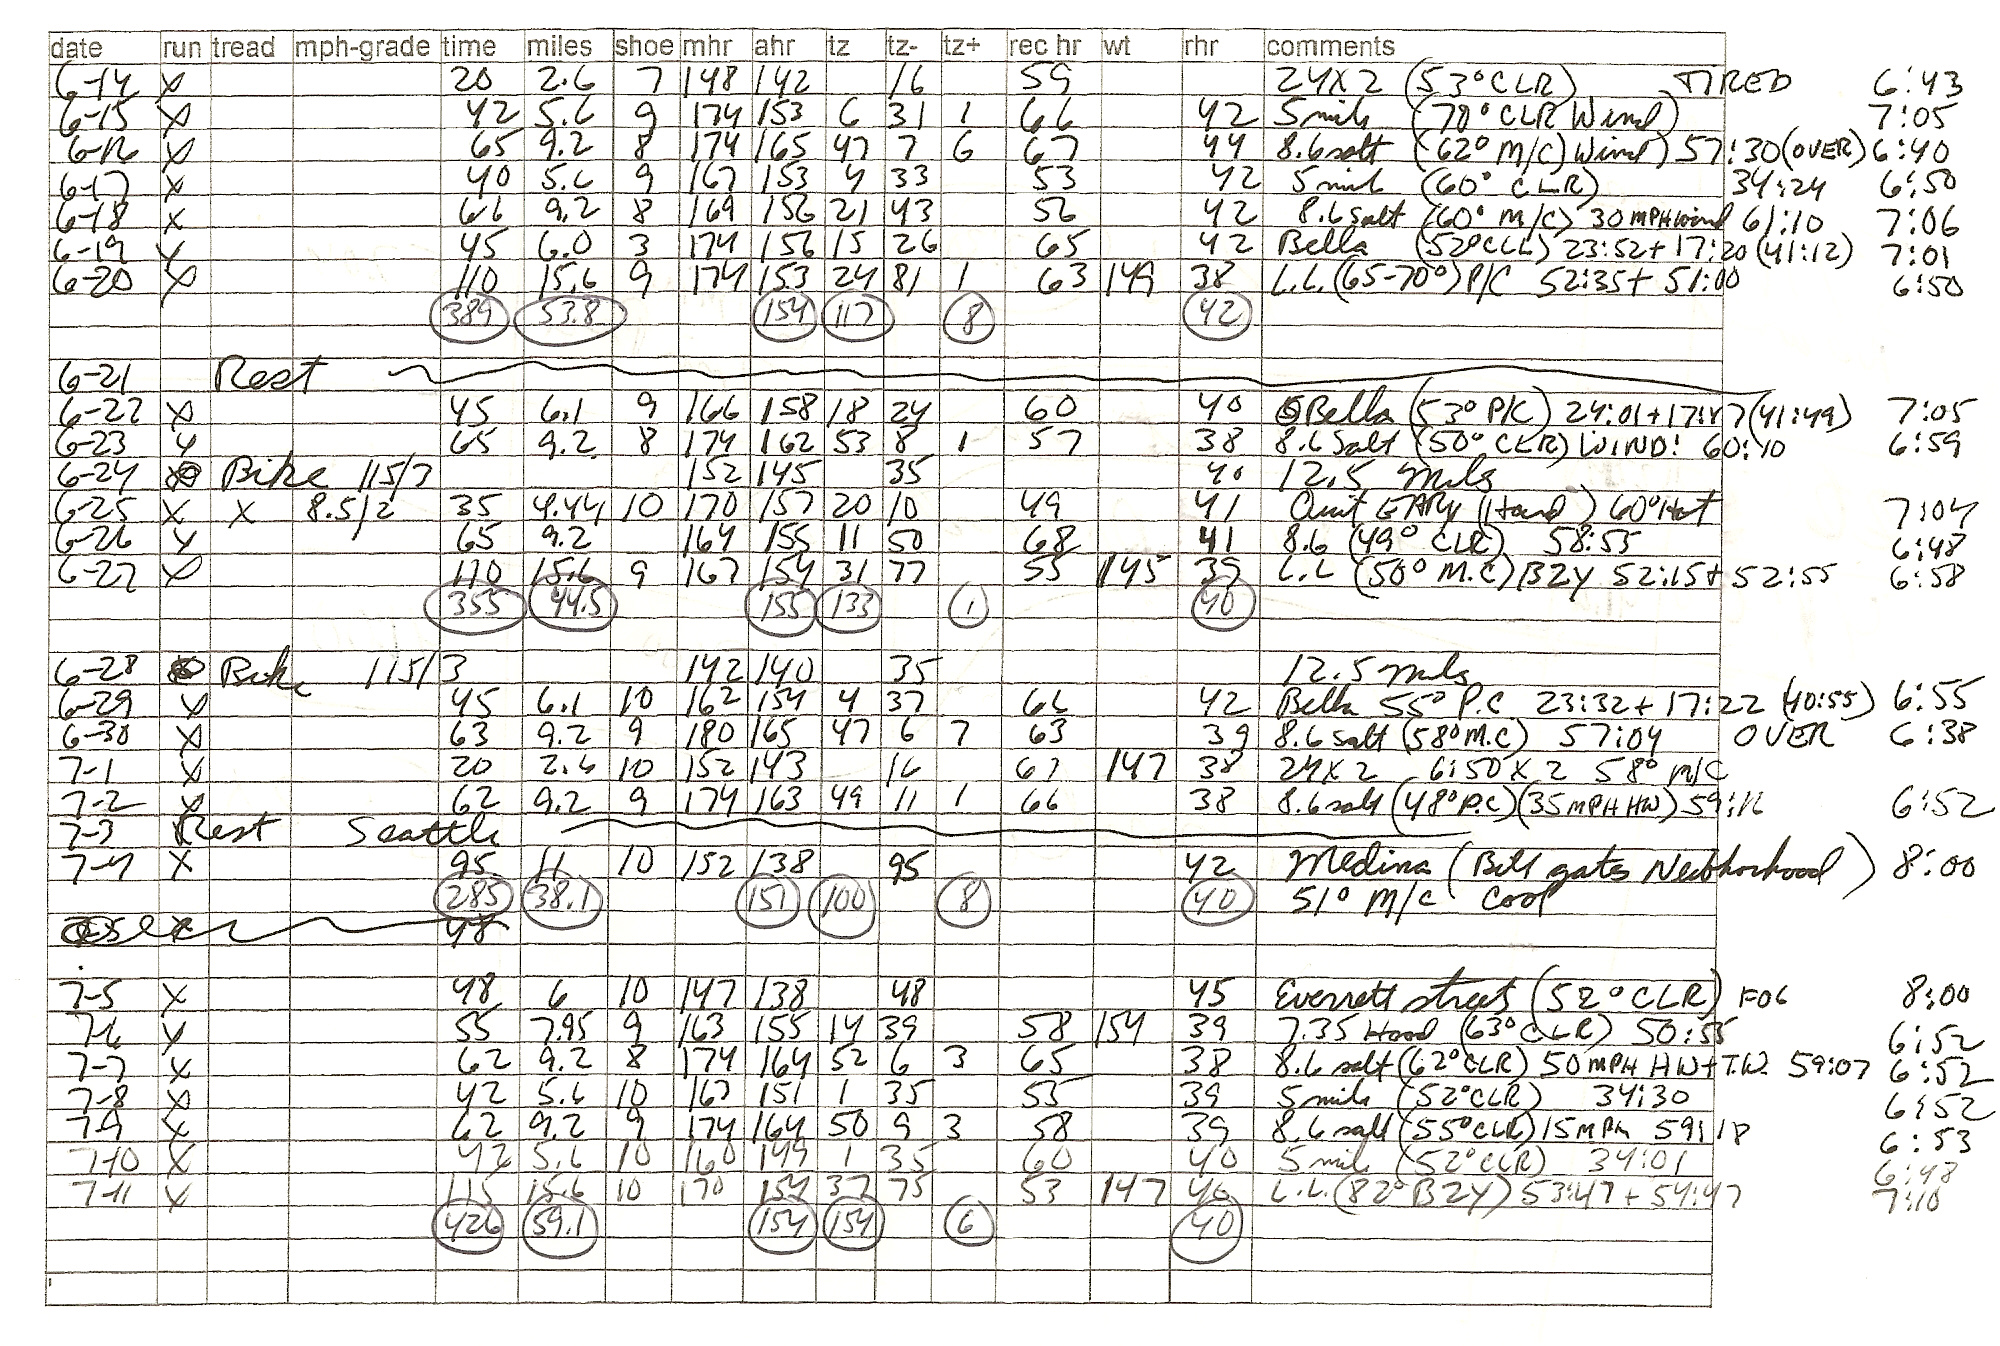 date run tread mph-grade time miles shoe mhr ahr tz tz- tz+ rec hr wt rhr comments
6-14 X 20 2.6 7 148 142 16 59 24X2 (53° CLR) TIRED 6:43
6-15 X 42 5.6 9 174 153 6 31 1 66 42 5 mile (70° CLR Wind) 7:05
6-16 X 65 9.2 8 174 165 47 7 6 67 44 8.6 salt (62° M/C) Wind) 57:30 (OVER) 6:40
6-17 X 40 5.6 9 167 153 4 33 53 42 5 mile (60° CLR) 34:24 6:50
6-18 X 66 9.2 8 169 156 21 43 56 42 8.6 salt (60° M/C) 30 MPH wind 61:10 7:06
6-19 X 45 6.0 3 174 156 15 26 65 42 Bella (52° CLR) 23:52 + 17:20 (41:12) 7:01
6-20 X 110 15.6 9 174 153 24 81 1 63 149 38 L.L. (65-70°) P/C 52:35 + 51:00 6:50
389 53.8 154 117 8 42
6-21 Rest
6-22 X 45 6.1 9 166 158 18 24 60 40 Bella (53° P/C) 24:01 + 17:47 (41:49) 7:05
6-23 X 65 9.2 8 174 162 53 8 1 57 38 8.6 Salt (50° CLR) WIND! 60:10 6:59
6-24 Bike 115/3 152 145 35 40 12.5 Miles
6-25 X X 8.5/2 35 4.44 10 170 157 20 10 49 41 Quit EARly (Hard) 60° Hot 7:04
6-26 X 65 9.2 164 155 11 50 68 41 8.6 (49° CLR) 58:55 6:48
6-27 X 110 15.6 9 167 154 31 77 55 145 39 L.L (50° M.C) BZY 52:15 + 52:55 6:58
355 44.5 155 133 1 40
6-28 Bike 115/3 142 140 35 12.5 miles
6-29 X 45 6.1 10 162 154 4 37 66 42 Bella 55° P.C 23:32 + 17:22 (40:55) 6:55
6-30 X 63 9.2 9 180 165 47 6 7 63 39 8.6 salt (58° M.C) 57:04 OVER 6:38
7-1 X 20 2.6 10 152 143 16 67 147 38 24X2 6:50 X 2 58° M/C
7-2 X 62 9.2 9 174 163 49 11 1 66 38 8.6 salt (48° P.C) (35 MPH HW) 59:16 6:52
7-3 Rest Seattle
7-4 X 95 11 10 152 138 95 42 Medina (Bill gates Neibhorhood) 8:00
285 38.1 151 100 8 40 51° M/C Cool
48
7-5 X 48 6 10 147 138 48 45 Everrett street (52° CLR) FOG 8:00
7-6 X 55 7.95 9 163 155 14 39 58 154 39 7.35 Hood (63° CLR) 50:55 6:52
7-7 X 62 9.2 8 174 164 52 6 3 65 38 8.6 salt (62° CLR) 50 MPH HW + T.W. 59:07 6:52
7-8 X 42 5.6 10 167 151 1 35 55 39 5 mile (52° CLR) 34:30 6:52
7-9 X 62 9.2 9 174 164 50 9 3 58 39 8.6 salt (55° CLR) 15 MPH 59:18 6:53
7-10 X 42 5.6 10 160 149 1 35 60 40 5 mile (52° CLR) 34:01 6:48
7-11 X 115 15.6 10 170 154 37 75 53 147 46 L.L. (82° BZY) 53:47 + 54:47 7:10
426 59.1 154 154 6 40